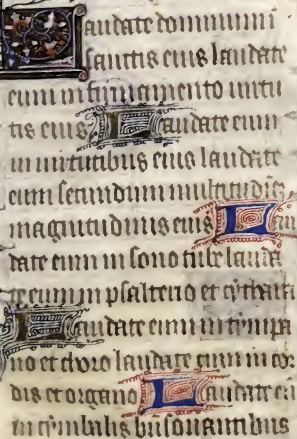 Laudate dominum i
sanctis eius laudate
eum in firmamento virtu
tis eius Laudate eum
in virtutibus eius laudate
eum secundum multitudinē
magnitudinis eius Lau
date eum in sono tube lauda
te eum in psalterio et cythara
Laudate eum in timpa
no et choro laudate eum in cor
dis et organo Laudate eū
in cymbalis bñsonantibus